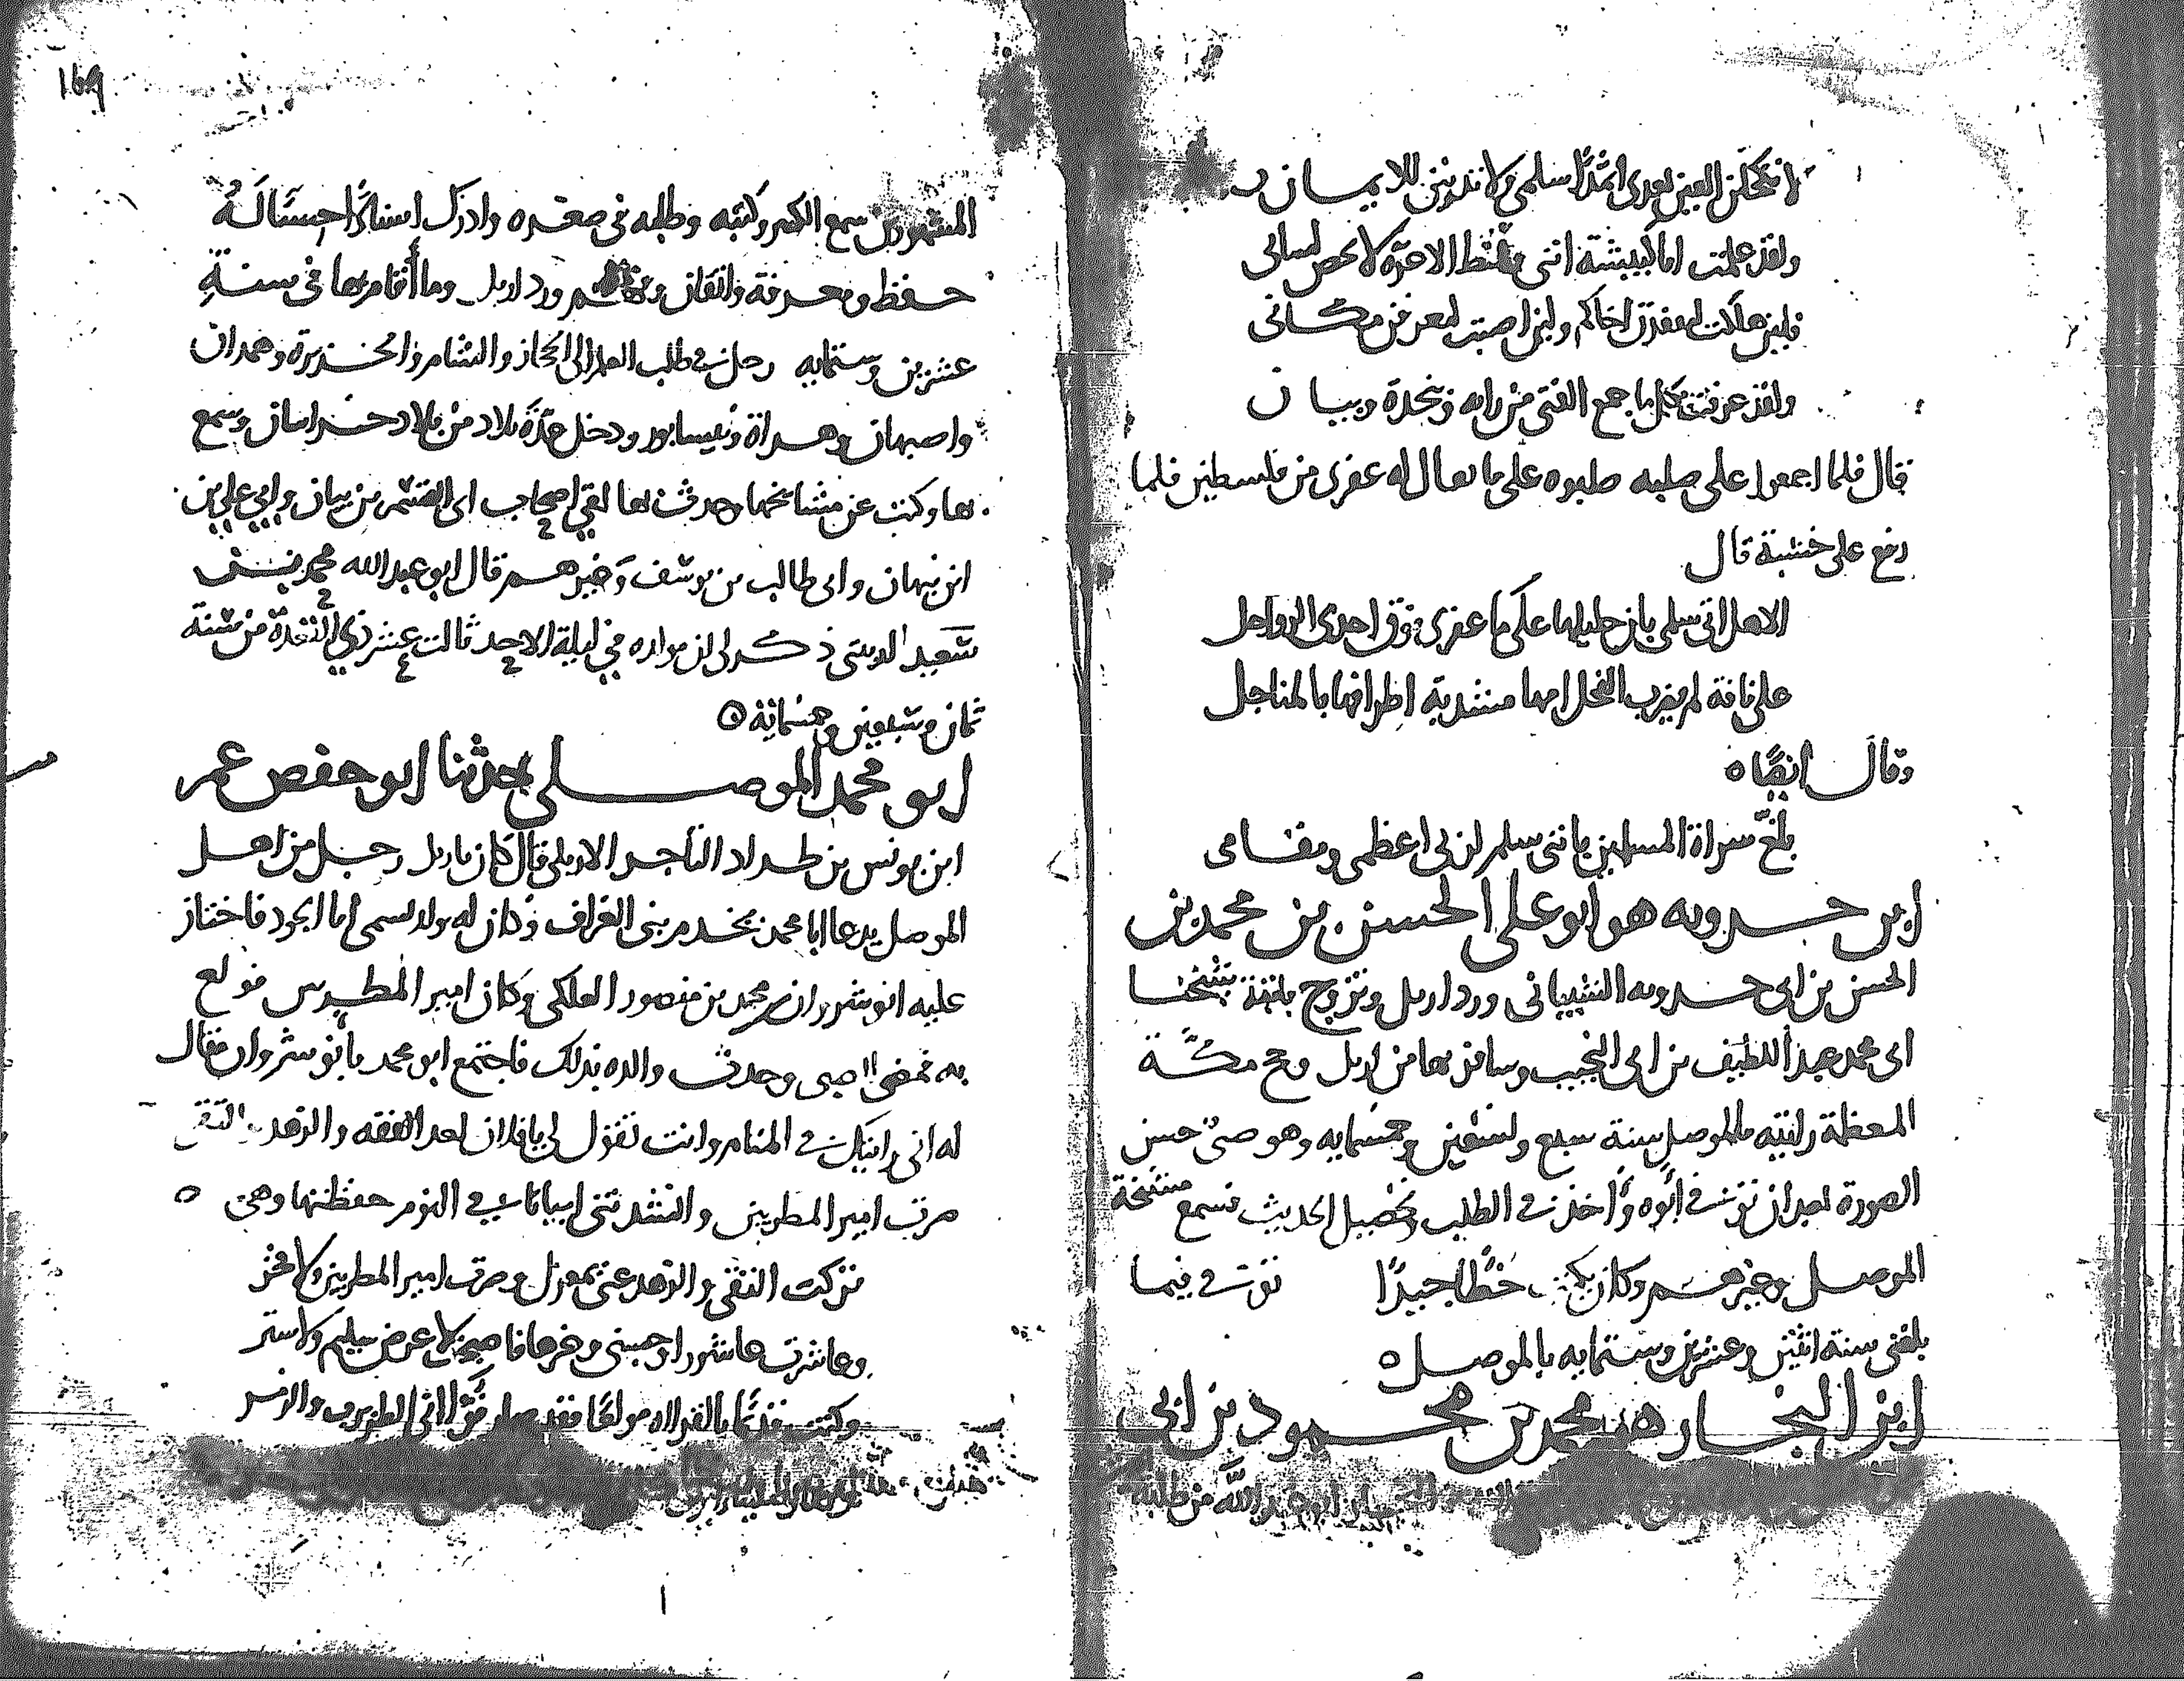 لا تكحلن العين بعدى اثمدا سلمى ولا تدوين للايمـان
ولقد علمت اما كبيشة اننى وسط الاعزة لا يحص لسانى
فلين هلكت لتفقدن اخاكم ولين اصبت لتعرفن مكـانى
ولقد عرفت بكل ما جمع الفتى من رايه وبنجدة وبيـان
قال فلما اجمعوا على صلبه صلبوه على ما يقال له عفرى من فلسطين فلما
رفع على خشبة قال
الا هل اتى سلمى بان حليلها على ما عفرى فوق احدى الرواحل
على ناقة لم يضرب الفحل امها مشذبة اطرافها بالمناجل
وقال ايضًا ه
بلغ سراة المسلمين باننى سلم لربى اعظمى ومقـامى
ابن حـدويه هو ابو على الحسن بن محمد بن
الحسن بن ابى حـدويه الشيبانى ورد اربل وتزوج بابنة شيخنـا
ابى محمد عبد اللطيف بن ابى النجيب وسافر بها من اربل وحج مكـة
المعظمة رايته بالموصل سنة سبع وتسعين وخمسمايه وهو صبى حسن
الصورة بعد ان توفى ابوه واخذ فى الطلب وتحصيل الحديث فسمع مشيخة
الموصل وغيرهم وكان يكتب خطًا جيدًا توفى فيما
بلغنى سنة اثنين وعشرين وستمايه بالموصل ه
ابن النجـار هو محمد بن محمود بن ابى
ابو عبد الله من طلبة
169
المشهورين سمع الكثير وكتبه وطلبه فى صغره وادرك اسنادًا حسنًا لَهُ
حفظ ومعرفة واتقان وفهم ورد اربل وما أقام بها فى سنة
عشرين وستمايه رحل فى طلب العلم الى الحجاز والشام والجزيرة وهمدان
واصبهان وهراة ونيسابور ودخل عدة بلاد من بلاد خراسان وسمع
بها وكتب عن مشايخها وحدث بها لقى اصحاب ابى القسم بن بيان وابى على بن
ابن نبهان وابى طالب بن يوسف وغيرهم قال ابو عبد الله محمد بن
سعيد الدبيثى ذكر لى ان مولده فى ليلة الاحد ثالث عشر ذى القعدة من سنة
ثمان وسبعين وخمسمائة ه
ابو محمد الموصـلى حدثنا ابو حفص عمر
ابن يونس بن طـراد التاجر الاربلى قال كان باربل رجل من اهـل
الموصل يدعا ابا محمد يخدم بنى الغراف وكان له ولد يسمى ابا الجود فاختاز
عليه انوشروان بن محمد بن منصور الملكى وكان امير المطربين فولع
به فمضى الصبى وحدث والده بذلك فاجتمع ابو محمد بانوشروان فقال
له انى رايتك فى المنام وانت تقول لى يا فلان بعد الفقه والزهد والتقى
صرت امير المطربين وانشدتنى ابياتا فى النوم حفظتها وهى ه
تركت التقى والزهد عنى بمعزل وصرت امير المطربين ولا فخر
وعاشرت عاشورا وحبيبى وغرها فاصبح لا عرض سليم ولا ستر
وكنت قديمًا بالقران مولعًا فقد صار قرانى الطنبور والزمر